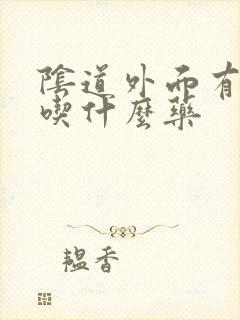 陰道外面有
喫什麼藥
韞香